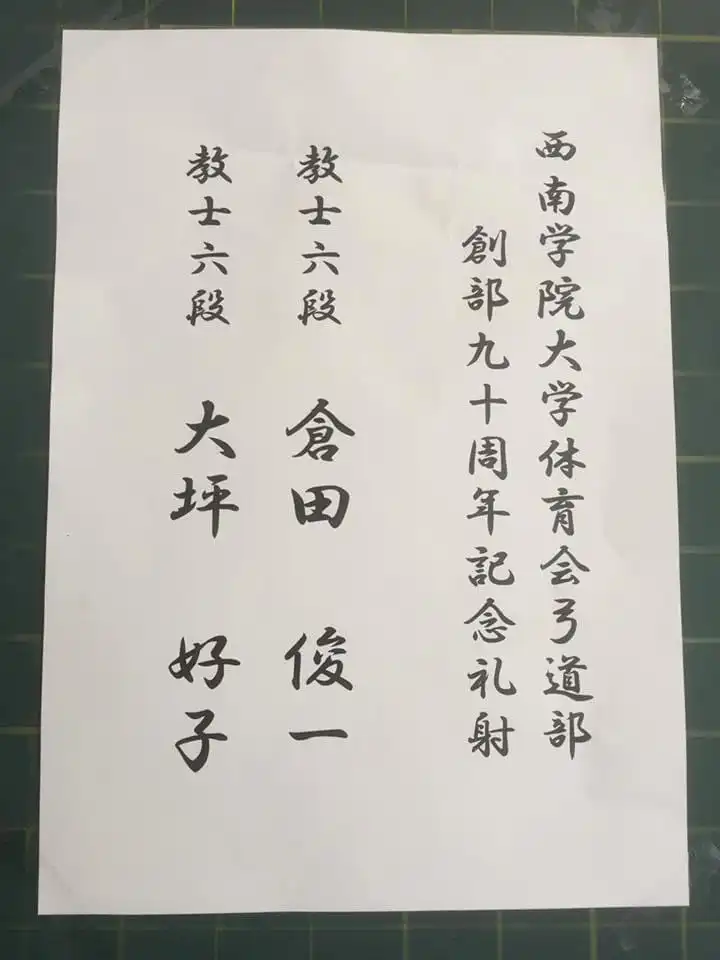 西南学院大学体育会弓道部
創部九十周年記念礼射
教士六段 倉田 俊一
教士六段 大坪 好子